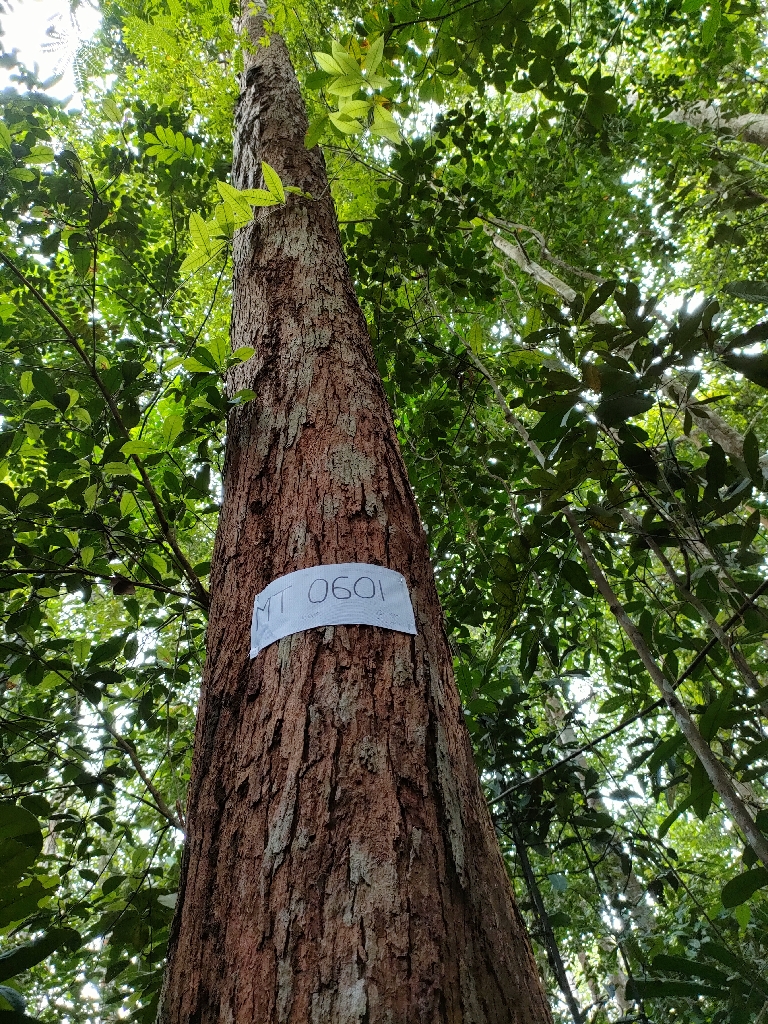 MT 0601